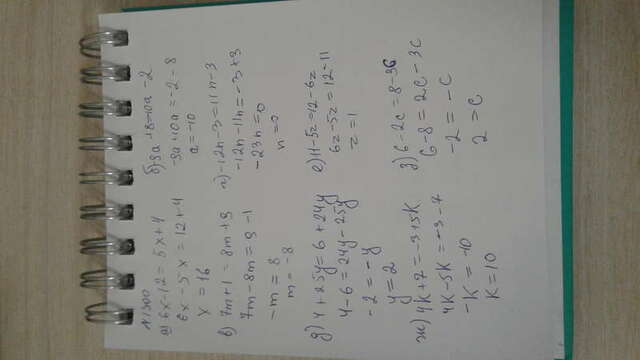 N1300
а) 6x-12=5x+4
6x-5x=12+4
x=16
б) 9a+8=10a-2
-9a+10a=-2-8
a=-10
в) 7m+1=8m+9
7m-8m=9-1
-m=8
m=-8
г) -12n-3=11n-3
-12n-11n=-3+3
-23n=0
n=0
д) 4+25y=6+24y
4-6=24y-25y
-2=-y
y=2
е) 11-5z=12-6z
6z-5z=12-11
z=1
ж) 4k+7=-3+5k
4k-5k=-3-7
-k=-10
k=10
з) 6-2c=8-3c
6-8=2c-3c
-2=-c
2=c